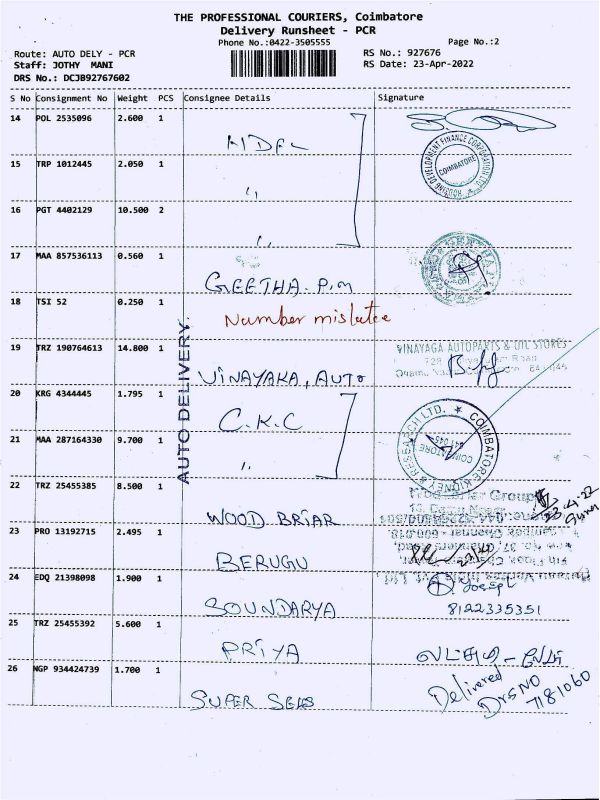 THE PROFESSIONAL COURIERS, Coimbatore
Delivery Runsheet - PCR
Phone No.:0422-3505555
Page No.:2
Route: AUTO DELY - PCR
Staff: JOTHY MANI
DRS No.: DCJB92767602
RS No.: 927676
RS Date: 23-Apr-2022
S No Consignment No Weight PCS Consignee Details Signature
14 POL 2535096 2.600 1
HDFC
HOUSING DEVELOPMENT FINANCE CORPORATION LTD.
COIMBATORE
15 TRP 1012445 2.050 1
"
16 PGT 4402129 10.500 2
"
17 MAA 857536113 0.560 1
GEETHA. P.M
18 TSI 52 0.250 1
Number mistake
19 TRZ 190764613 14.800 1
VINAYAKA, AUTO
VINAYAGA AUTOPARTS & OIL STORES
AUTO DELIVERY
20 KRG 4344445 1.795 1
C.K.C
COIMBATORE KIDNEY & RESEARCH LTD.
COIMBATORE
641 045
21 MAA 287164330 9.700 1
"
22 TRZ 25455385 8.500 1
WOOD BRIAR
23.4.22
23 PRO 13192715 2.495 1
BERUGU
24 EDQ 21398098 1.900 1
SOUNDARYA
Joseph
8122335351
25 TRZ 25455392 5.600 1
PRIYA
26 NGP 934424739 1.700 1
SUPER SEALS
Delivered
DRS NO
7181060